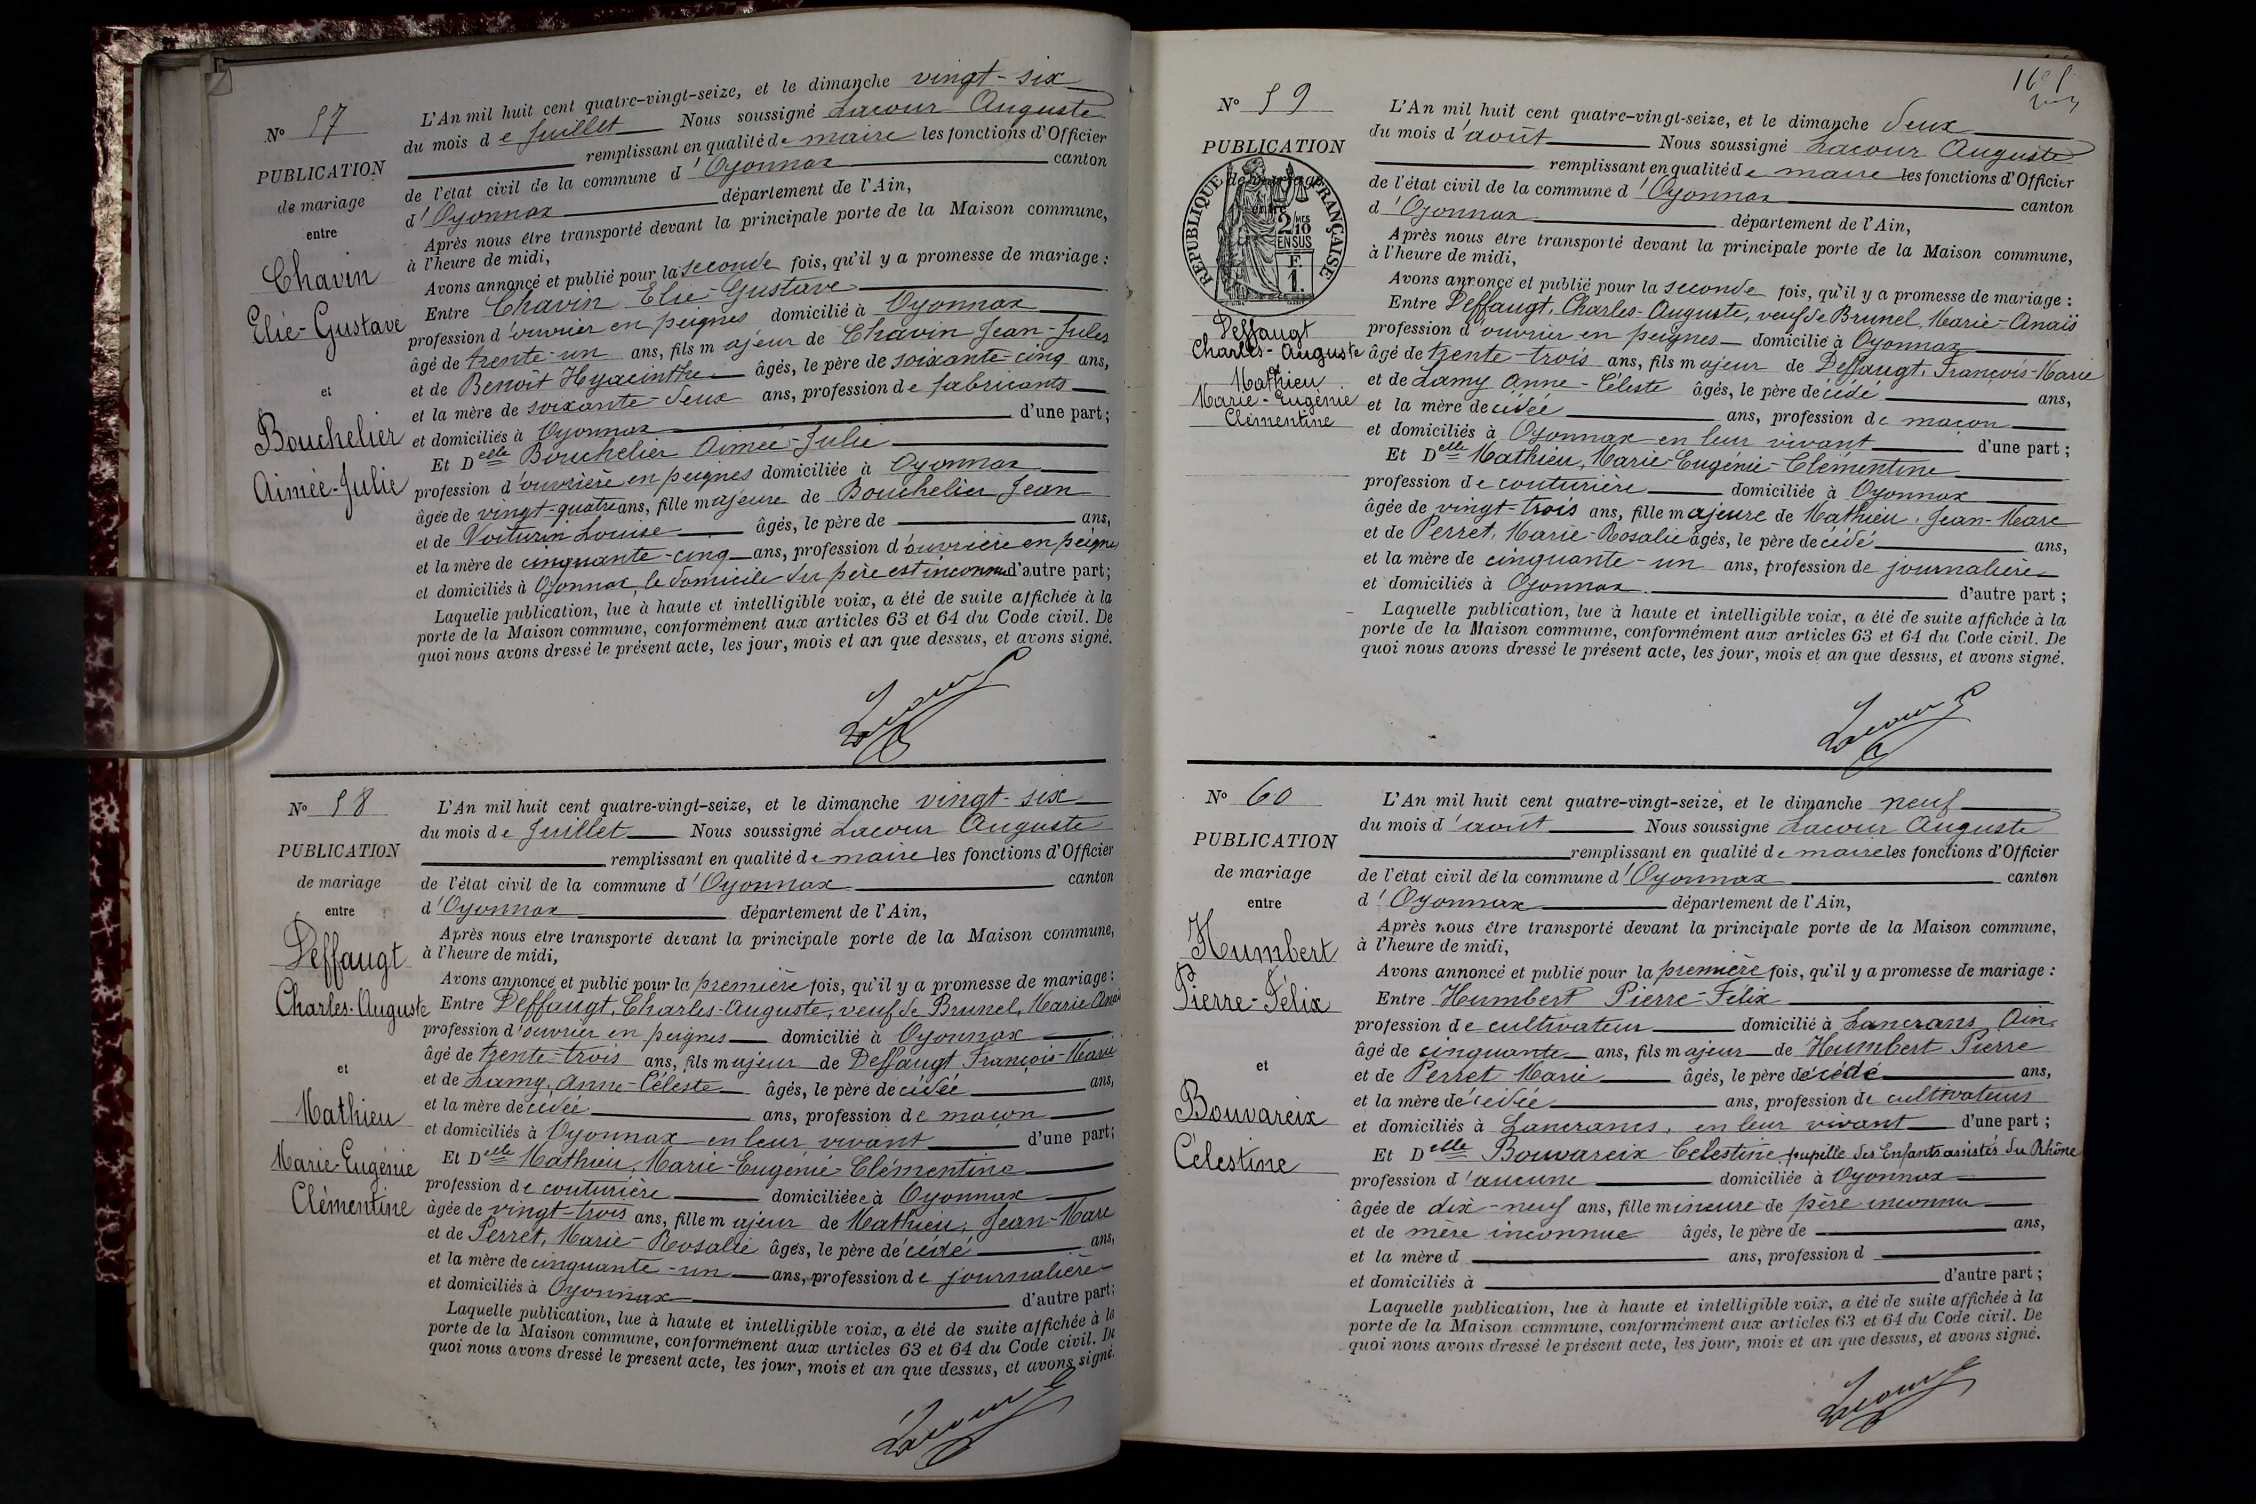 N° 57
PUBLICATION
de mariage
entre
Chavin
Elie-Gustave
et
Bouchelier
Aimée-Julie
L'An mil huit cent quatre-vingt-seize, et le dimanche vingt-six
du mois de Juillet Nous soussigné Lacour Auguste
remplissant en qualité de maire les fonctions d'Officier
de l'état civil de la commune d'Oyonnax canton
d'Oyonnax département de l'Ain,
Après nous être transporté devant la principale porte de la Maison commune,
à l'heure de midi,
Avons annoncé et publié pour la seconde fois, qu'il y a promesse de mariage :
Entre Chavin Elie-Gustave
profession d'ouvrier en peignes domicilié à Oyonnax
âgé de trente-un ans, fils majeur de Chavin Jean-Jules
et de Benoît Hyacinthe âgés, le père de soixante-cinq ans,
et la mère de soixante-deux ans, profession de fabricants
et domiciliés à Oyonnax d'une part ;
Et Delle Bouchelier Aimée-Julie
profession d'ouvrière en peignes domiciliée à Oyonnax
âgée de vingt-quatre ans, fille majeure de Bouchelier Jean
et de Voiturin Louise âgés, le père de ans,
et la mère de cinquante-cinq ans, profession d'ouvrière en peignes
et domiciliés à Oyonnax, le domicile du père est inconnu d'autre part ;
Laquelle publication, lue à haute et intelligible voix, a été de suite affichée à la
porte de la Maison commune, conformément aux articles 63 et 64 du Code civil. De
quoi nous avons dressé le présent acte, les jour, mois et an que dessus, et avons signé.
Lacour
N° 58
PUBLICATION
de mariage
entre
Deffaugt
Charles-Auguste
et
Mathieu
Marie-Eugénie
Clémentine
L'An mil huit cent quatre-vingt-seize, et le dimanche vingt-six
du mois de Juillet Nous soussigné Lacour Auguste
remplissant en qualité de maire les fonctions d'Officier
de l'état civil de la commune d'Oyonnax canton
d'Oyonnax département de l'Ain,
Après nous être transporté devant la principale porte de la Maison commune,
à l'heure de midi,
Avons annoncé et publié pour la première fois, qu'il y a promesse de mariage :
Entre Deffaugt, Charles-Auguste, veuf de Brunel, Marie Anaïs
profession d'ouvrier en peignes domicilié à Oyonnax
âgé de trente-trois ans, fils majeur de Deffaugt François-Marie
et de Lamy, Anne-Céleste âgés, le père décédé ans,
et la mère décédée ans, profession de maçon
et domiciliés à Oyonnax en leur vivant d'une part ;
Et Delle Mathieu, Marie-Eugénie-Clémentine
profession de couturière domiciliée à Oyonnax
âgée de vingt-trois ans, fille majeur de Mathieu, Jean-Marc
et de Perret, Marie-Rosalie âgés, le père décédé ans,
et la mère de cinquante-un ans, profession de journalière
et domiciliés à Oyonnax d'autre part ;
Laquelle publication, lue à haute et intelligible voix, a été de suite affichée à la
porte de la Maison commune, conformément aux articles 63 et 64 du Code civil. De
quoi nous avons dressé le présent acte, les jour, mois et an que dessus, et avons signé.
Lacour
N° 59
PUBLICATION
de mariage
entre
RÉPUBLIQUE FRANÇAISE
2/10
EN SUS
F.
1.
Deffaugt
Charles-Auguste
Mathieu
Marie-Eugénie
Clémentine
L'An mil huit cent quatre-vingt-seize, et le dimanche deux
du mois d'août Nous soussigné Lacour Auguste
remplissant en qualité de maire les fonctions d'Officier
de l'état civil de la commune d'Oyonnax canton
d'Oyonnax département de l'Ain,
Après nous être transporté devant la principale porte de la Maison commune,
à l'heure de midi,
Avons annoncé et publié pour la seconde fois, qu'il y a promesse de mariage :
Entre Deffaugt, Charles-Auguste, veuf de Brunel, Marie-Anaïs
profession d'ouvrier en peignes domicilié à Oyonnax
âgé de trente-trois ans, fils majeur de Deffaugt, François-Marie
et de Lamy Anne-Céleste âgés, le père décédé ans,
et la mère décédée ans, profession de maçon
et domiciliés à Oyonnax en leur vivant d'une part ;
Et Delle Mathieu, Marie-Eugénie-Clémentine
profession de couturière domiciliée à Oyonnax
âgée de vingt-trois ans, fille majeure de Mathieu, Jean-Marc
et de Perret, Marie-Rosalie âgés, le père décédé ans,
et la mère de cinquante-un ans, profession de journalière
et domiciliés à Oyonnax d'autre part ;
Laquelle publication, lue à haute et intelligible voix, a été de suite affichée à la
porte de la Maison commune, conformément aux articles 63 et 64 du Code civil. De
quoi nous avons dressé le présent acte, les jour, mois et an que dessus, et avons signé.
Lacour
N° 60
PUBLICATION
de mariage
entre
Humbert
Pierre-Félix
et
Bouvareix
Célestine
L'An mil huit cent quatre-vingt-seize, et le dimanche neuf
du mois d'août Nous soussigné Lacour Auguste
remplissant en qualité de maire les fonctions d'Officier
de l'état civil de la commune d'Oyonnax canton
d'Oyonnax département de l'Ain,
Après nous être transporté devant la principale porte de la Maison commune,
à l'heure de midi,
Avons annoncé et publié pour la première fois, qu'il y a promesse de mariage :
Entre Humbert Pierre-Félix
profession de cultivateur domicilié à Lancrans, Ain,
âgé de cinquante ans, fils majeur de Humbert Pierre
et de Perret Marie âgés, le père décédé ans,
et la mère décédée ans, profession de cultivateurs
et domiciliés à Lancrans, en leur vivant d'une part ;
Et Delle Bouvareix Célestine, pupille des Enfants assistés du Rhône
profession d'aucune domiciliée à Oyonnax
âgée de dix-neuf ans, fille mineure de père inconnu
et de mère inconnue âgés, le père de ans,
et la mère d ans, profession d
et domiciliés à d'autre part ;
Laquelle publication, lue à haute et intelligible voix, a été de suite affichée à la
porte de la Maison commune, conformément aux articles 63 et 64 du Code civil. De
quoi nous avons dressé le présent acte, les jour, mois et an que dessus, et avons signé.
Lacour